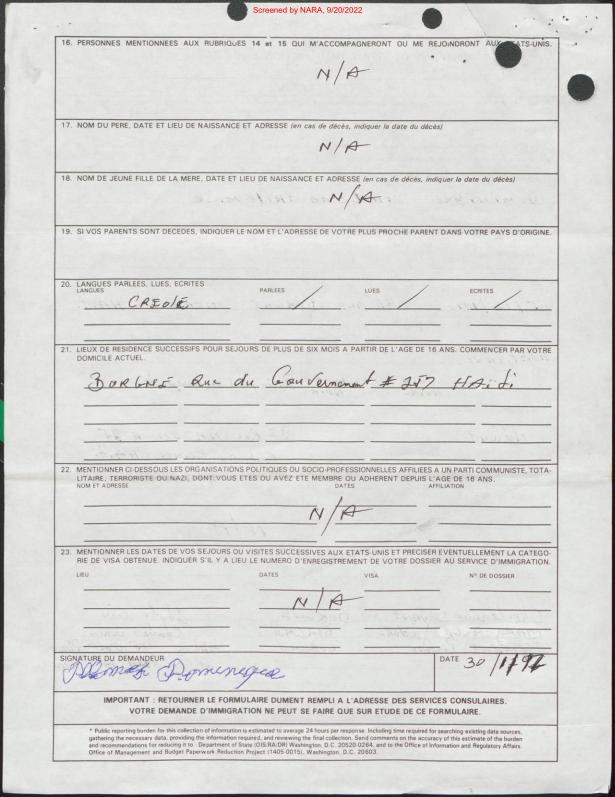 Screened by NARA, 9/20/2022
16. PERSONNES MENTIONNEES AUX RUBRIQUES 14 et 15 QUI M'ACCOMPAGNERONT OU ME REJOINDRONT AUX ETATS-UNIS.
N/A
17. NOM DU PERE, DATE ET LIEU DE NAISSANCE ET ADRESSE (en cas de décès, indiquer la date du décès)
N/A
18. NOM DE JEUNE FILLE DE LA MERE, DATE ET LIEU DE NAISSANCE ET ADRESSE (en cas de décès, indiquer la date du décès)
N/A
19. SI VOS PARENTS SONT DECEDES, INDIQUER LE NOM ET L'ADRESSE DE VOTRE PLUS PROCHE PARENT DANS VOTRE PAYS D'ORIGINE.
20. LANGUES PARLEES, LUES, ECRITES
LANGUES PARLEES LUES ECRITES
CREOLE / / /
21. LIEUX DE RESIDENCE SUCCESSIFS POUR SEJOURS DE PLUS DE SIX MOIS A PARTIR DE L'AGE DE 16 ANS. COMMENCER PAR VOTRE
DOMICILE ACTUEL.
BORGNE Rue du Gouvernement # 257 HAïti
22. MENTIONNER CI-DESSOUS LES ORGANISATIONS POLITIQUES OU SOCIO-PROFESSIONNELLES AFFILIEES A UN PARTI COMMUNISTE, TOTA-
LITAIRE, TERRORISTE OU NAZI, DONT VOUS ETES OU AVEZ ETE MEMBRE OU ADHERENT DEPUIS L'AGE DE 16 ANS.
NOM ET ADRESSE DATES AFFILIATION
N/A
23. MENTIONNER LES DATES DE VOS SEJOURS OU VISITES SUCCESSIVES AUX ETATS-UNIS ET PRECISER EVENTUELLEMENT LA CATEGO-
RIE DE VISA OBTENUE. INDIQUER S'IL Y A LIEU LE NUMERO D'ENREGISTREMENT DE VOTRE DOSSIER AU SERVICE D'IMMIGRATION.
LIEU DATES VISA N° DE DOSSIER
N/A
SIGNATURE DU DEMANDEUR DATE 30
IMPORTANT : RETOURNER LE FORMULAIRE DUMENT REMPLI A L'ADRESSE DES SERVICES CONSULAIRES.
VOTRE DEMANDE D'IMMIGRATION NE PEUT SE FAIRE QUE SUR ETUDE DE CE FORMULAIRE.
* Public reporting burden for this collection of information is estimated to average 24 hours per response. Including time required for searching existing data sources,
gathering the necessary data, providing the information required, and reviewing the final collection. Send comments on the accuracy of this estimate of the burden
and recommendations for reducing it to : Department of State (OIS/RA/DR) Washington, D.C. 20520-0264, and to the Office of Information and Regulatory Affairs
Office of Management and Budget Paperwork Reduction Project (1405-0015), Washington, D.C. 20603.